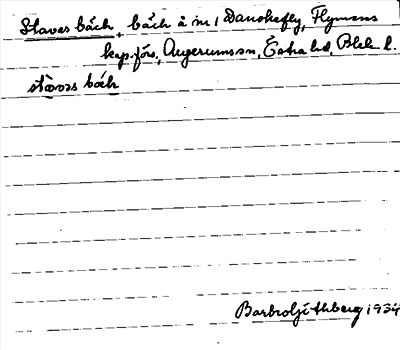 Stavas bäck, bäck å nr 1 Danskefly, Flymens
kap.förs, Augerums sn, Östra hd, Blek. l.
stavas bäk
Barbro Ljithberg 1934